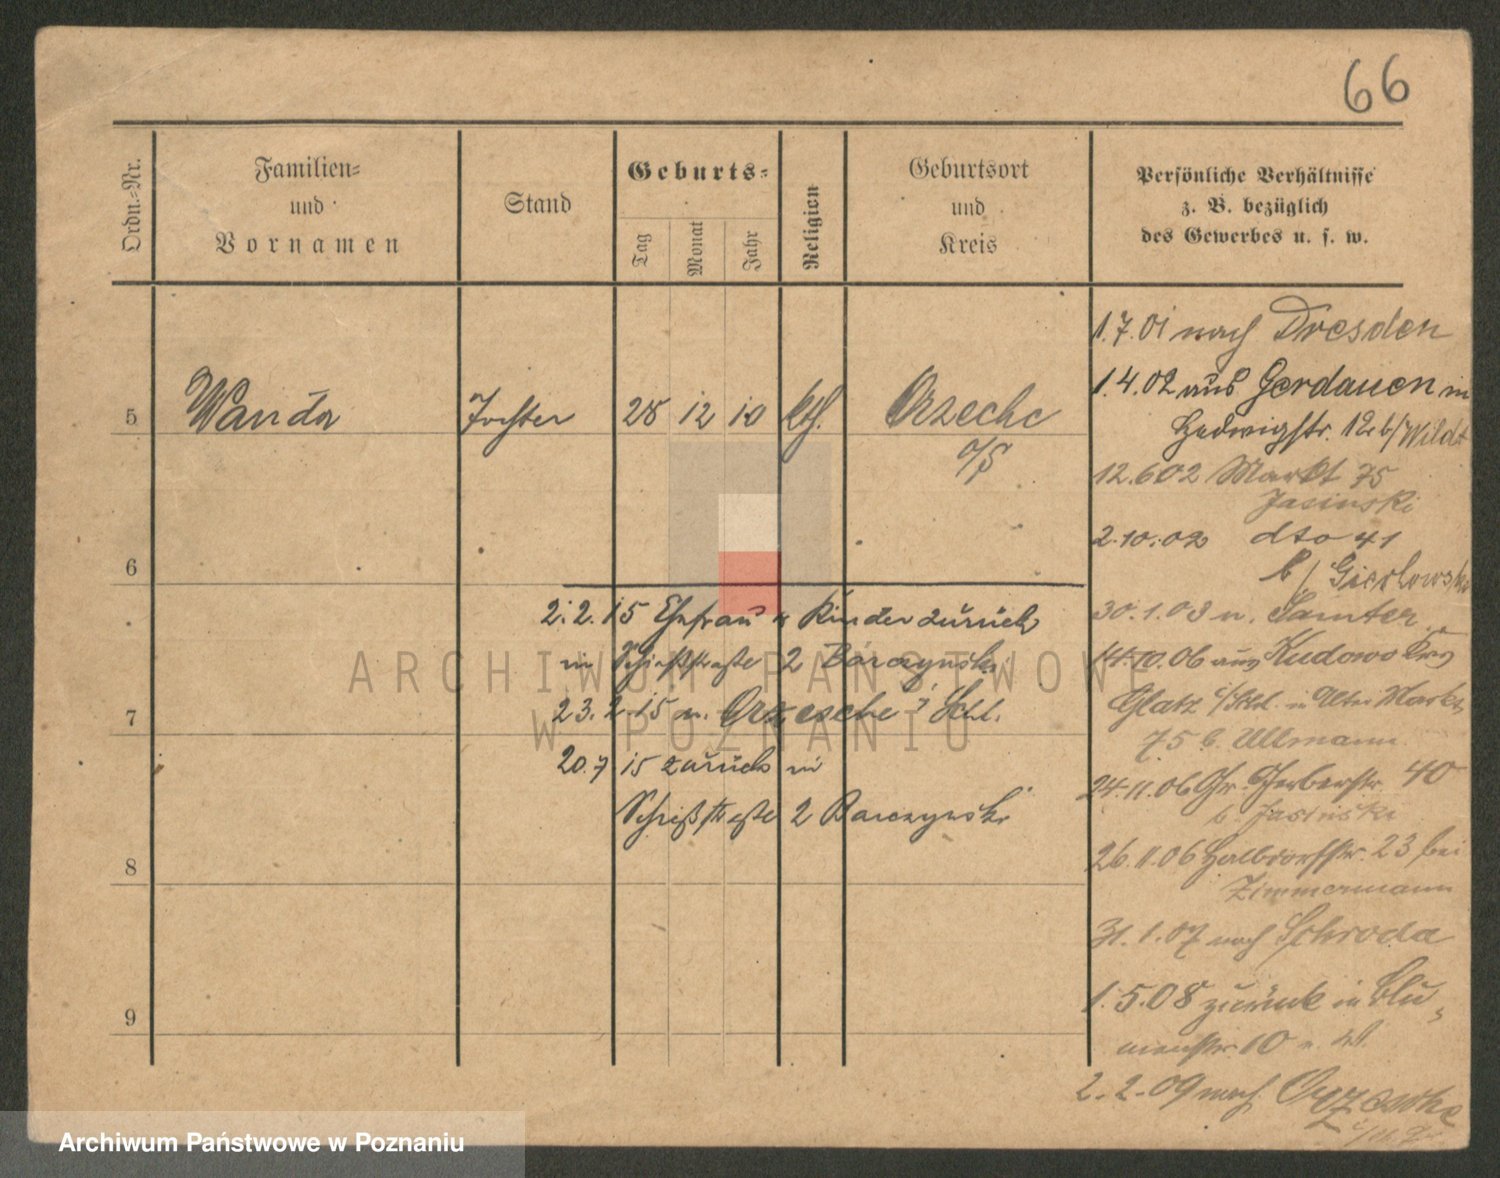 66
Ordn.-Nr.
Familien-
und
Vornamen
Stand
Geburts-
Tag
Monat
Jahr
Religion
Geburtsort
und
Kreis
Persönliche Verhältnisse
z. B. bezüglich
des Gewerbes u. s. w.
5 Wanda Tochter 28 12 10 kth. Orzeche
O/S
6
7
8
9
2.2.15 Ehefrau u Kinder zurück
in Schießstraße 2 Barczynski
23.2.15 n. Orzesche Schl.
20.7 15 zurück in
Schießstraße 2 Barczynski
1.7.01 nach Dresden
1.4.02 aus Gerdauen in
Hedwigstr. 12 b/ Wildt
12.6.02 Markt 75
Jasinski
2.10.02 dto 41
b/ Gierlowski
30.1.03 n. Samter
14.10.06 aus Kudowo Krs
Glatz in Alter Markt
75 b. Ullmann
24.11.06 Gr. Gerberstr. 40
b. Jasinski
26.11.06 Halbdorfstr. 23 bei
Zimmermann
31.1.07 nach Schroda
1.5.08 zurück in Blu-
menstr. 10
2.2.09 nach Orzesche
ARCHIWUM PAŃSTWOWE
W POZNANIU
Archiwum Państwowe w Poznaniu